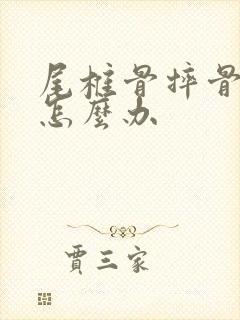 尾椎骨摔骨
怎麼办
賈三家